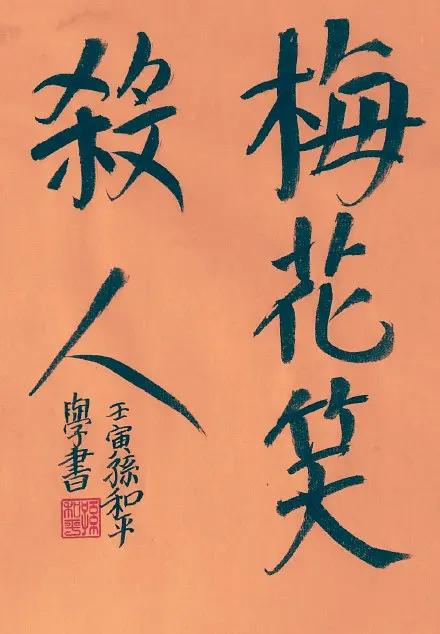 梅花笑
殺人
壬寅孫和平
學書
孫和平